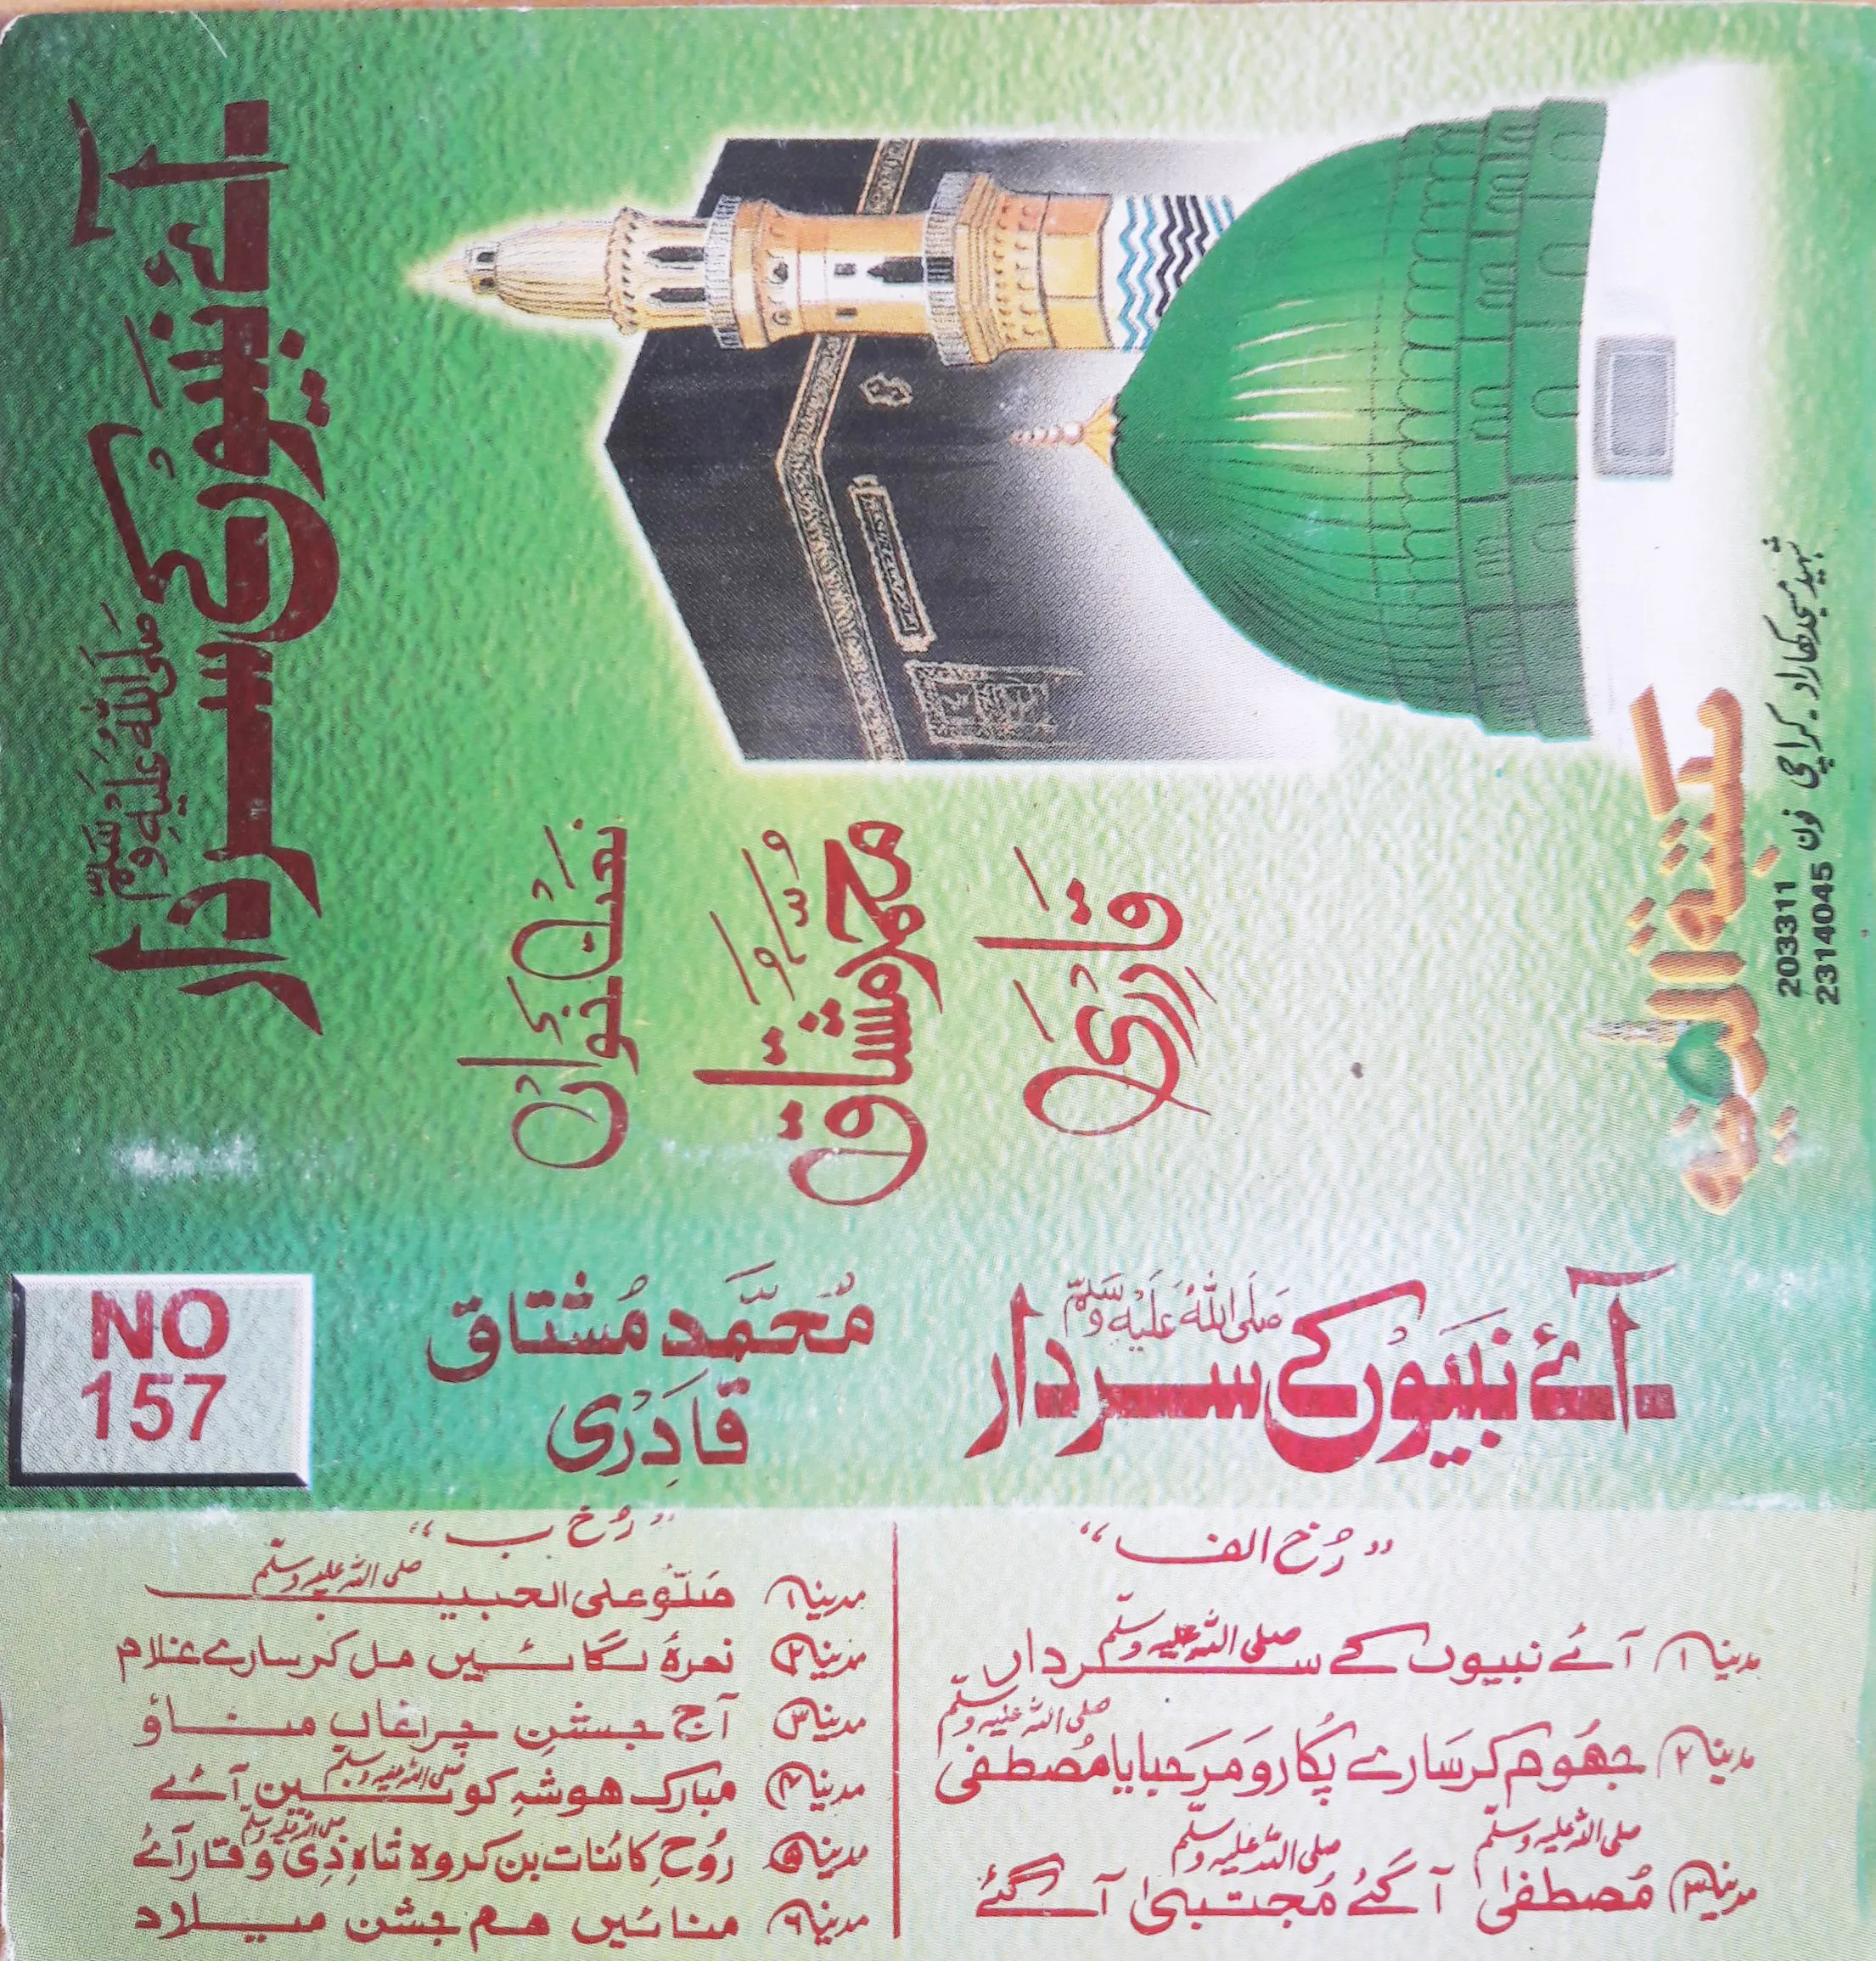 آئے نبیوں کے سردار
صلی اللہ علیہ وسلم
نعت خواں
محمد مشتاق
قادری
مکتبۃ المدینہ
شہید مسجد کھارادر کراچی فون
203311
2314045
NO
157
مُحَمَّد مُشتاق
قادری
آئے نبیوں کے سردار
صَلَّی اللہُ عَلَیْہِ وَسَلَّم
”رُخ الف“
مدینہ ۱ آئے نبیوں کے سردار صلی اللہ علیہ وسلم
مدینہ ۲ جھُوم کر سَارے پکارو مَرحَبا یا مُصطفٰی صلی اللہ علیہ وسلم
مدینہ ۳ مُصطفٰی صلی اللہ علیہ وسلم آگئے مُجتبیٰ صلی اللہ علیہ وسلم آگئے
”رُخ ب“
مدینہ ۱ صَلّو علی الحبیب صلی اللہ علیہ وسلم
مدینہ ۲ نعرۂ لگائیں مل کر سارے غلام
مدینہ ۳ آج جشنِ چراغاں مناؤ
مدینہ ۴ مبارک ہو شہِ کونین صلی اللہ علیہ وسلم آئے
مدینہ ۵ رُوحِ کائنات بن کر وہ شاہِ ذِی وقار آئے صلی اللہ علیہ وسلم
مدینہ ۶ منائیں ہم جشن میلاد